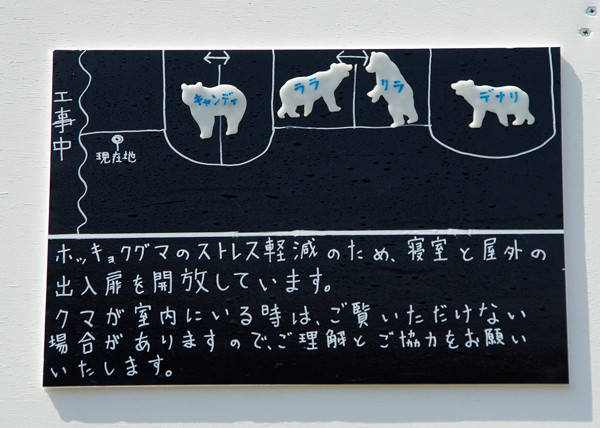 工事中
現在地
キャンディ
ララ
リラ
デナリ
ホッキョクグマのストレス軽減のため、寝室と屋外の
出入扉を開放しています。
クマが室内にいる時は、ご覧いただけない
場合がありますので、ご理解とご協力をお願い
いたします。